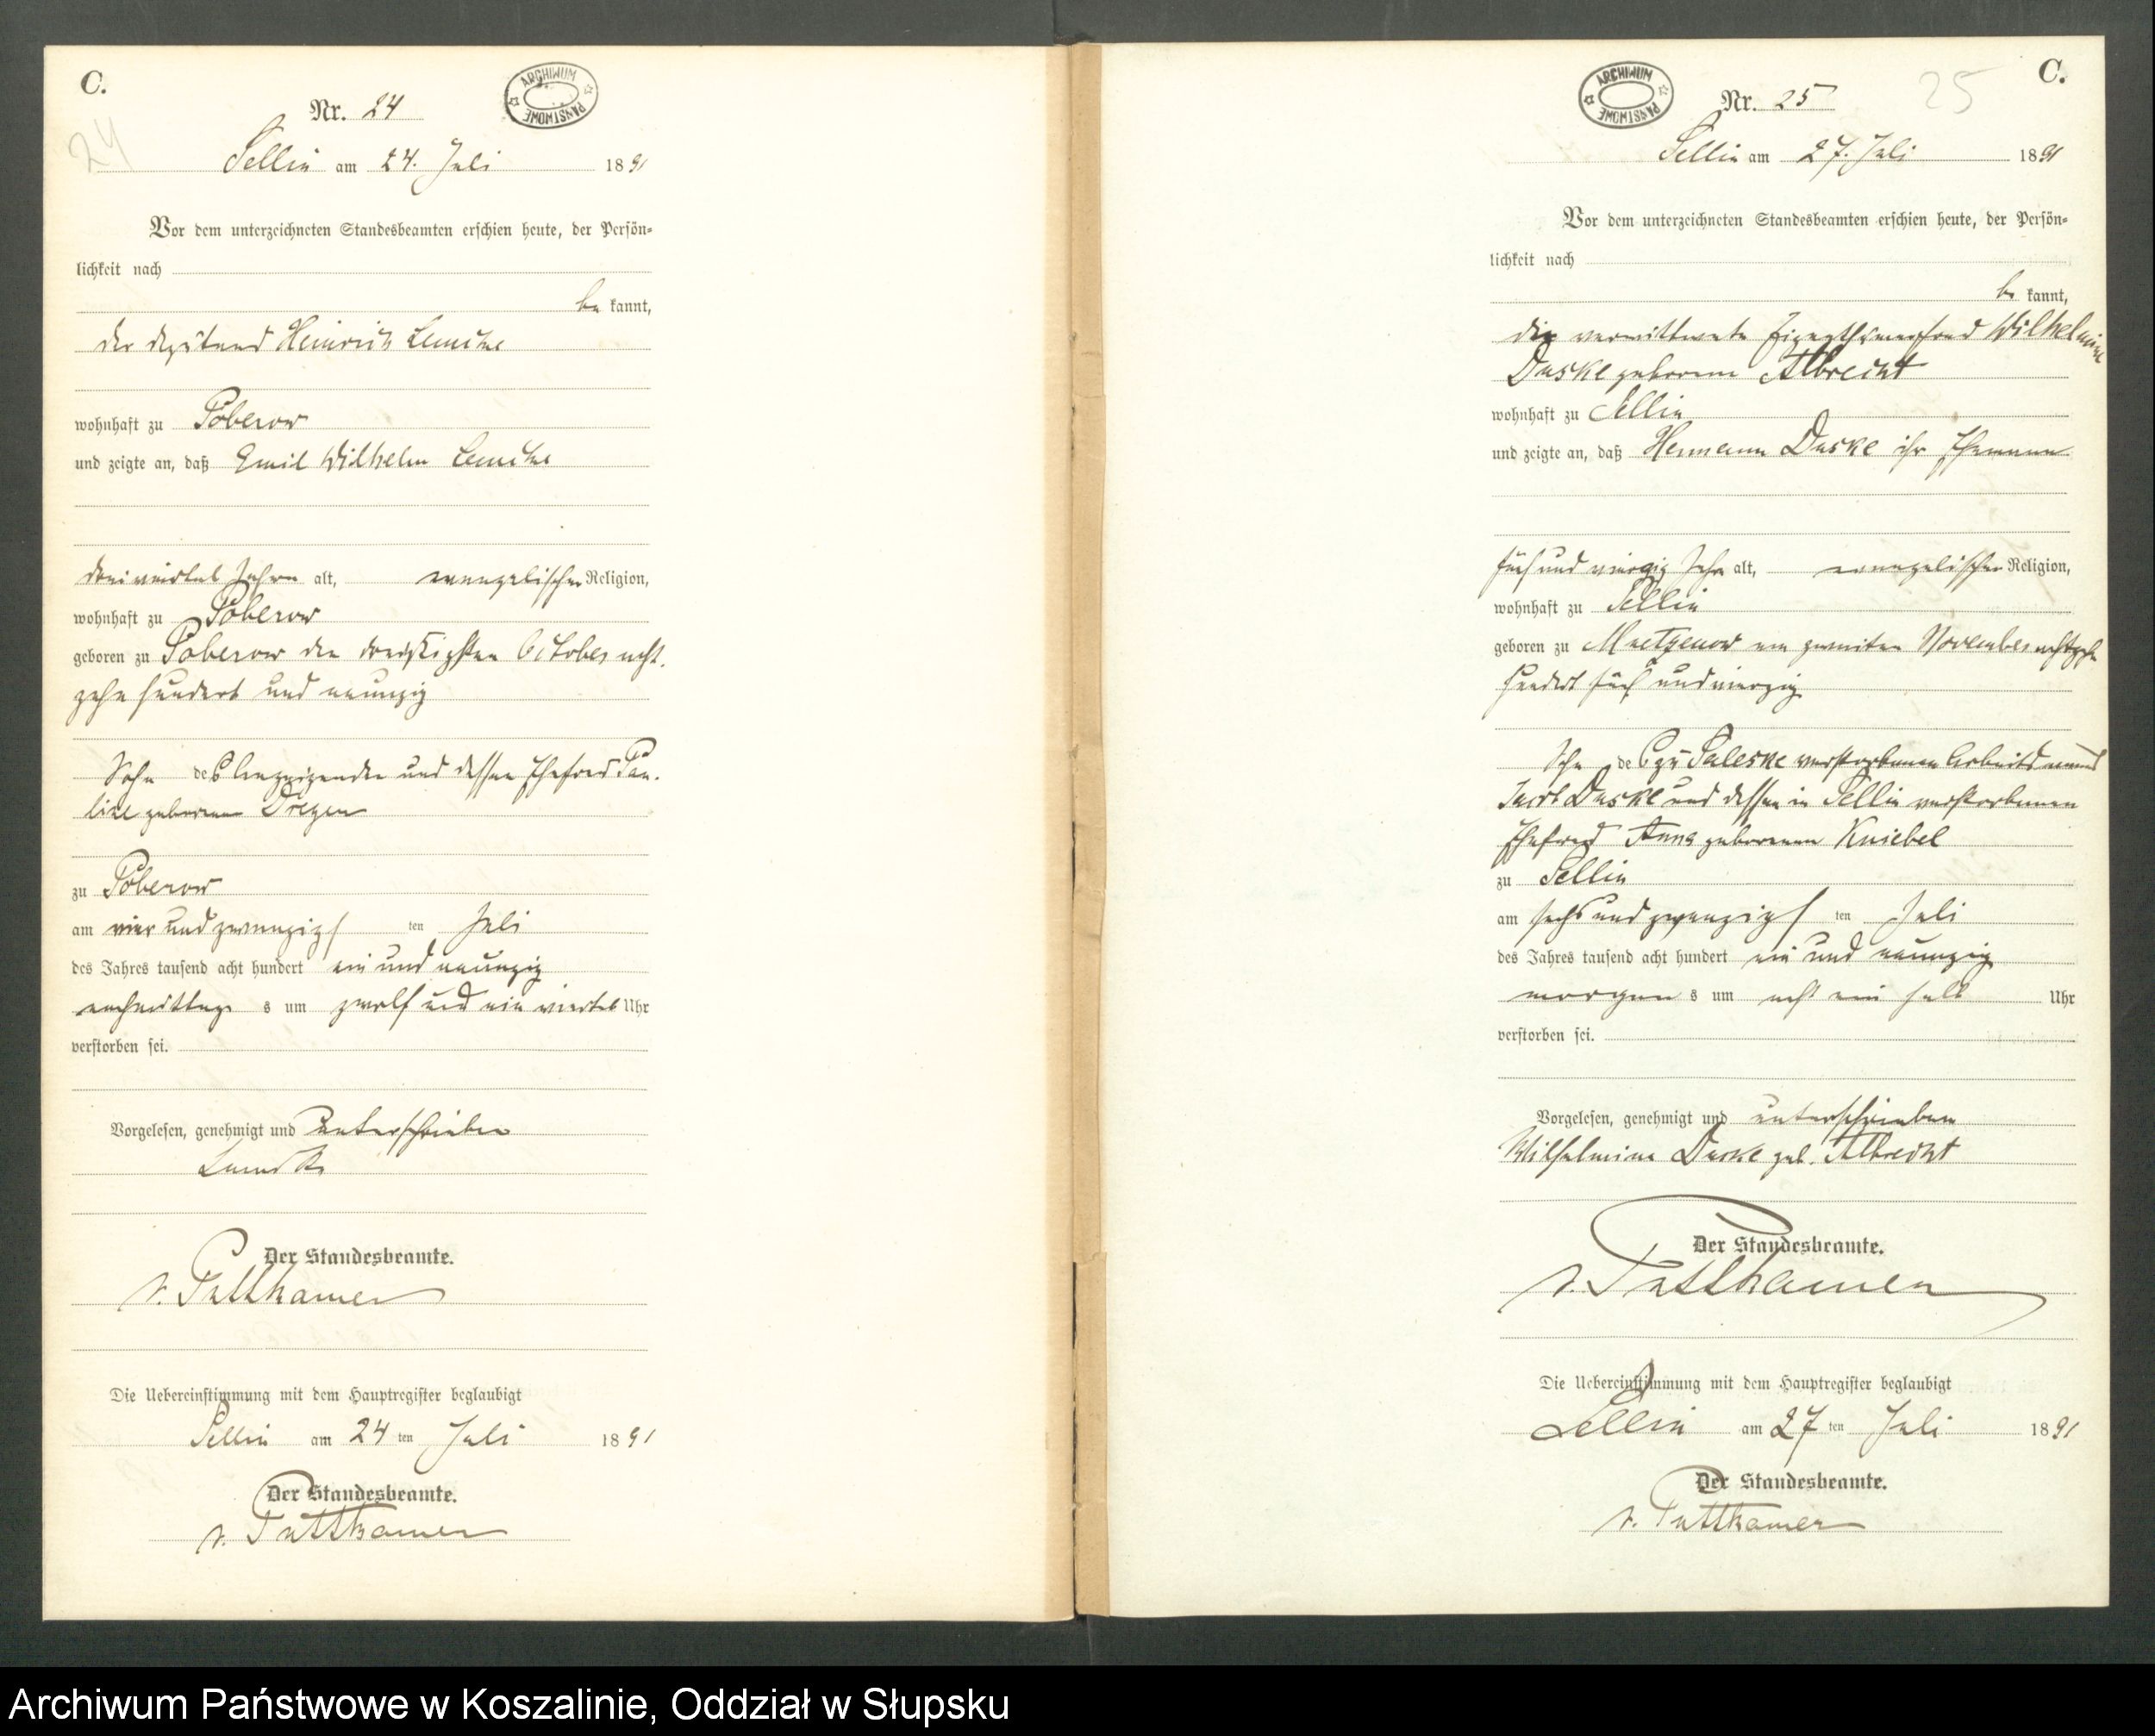 C.
Nr. 24
24
ARCHIWUM PAŃSTWOWE
Sellin am 24. Juli 1891
Vor dem unterzeichneten Standesbeamten erschien heute, der Persön-
lichkeit nach
be kannt,
der Deputand Heinrich Lemcke
wohnhaft zu Poberow
und zeigte an, daß Emil Wilhelm Lemcke
dreiviertel Jahre alt, evangelischer Religion,
wohnhaft zu Poberow
geboren zu Poberow den dreißigsten October acht-
zehn hundert und neunzig
Sohn des Anzeigenden und dessen Ehefrau Pau-
line geborene Dregen
zu Poberow
am vier und zwanzigs ten Juli
des Jahres tausend acht hundert ein und neunzig
nachmittag s um zwölf und ein viertel Uhr
verstorben sei.
Vorgelesen, genehmigt und unterschrieben
Lemcke
Der Standesbeamte.
v. Puttkamer
Die Uebereinstimmung mit dem Hauptregister beglaubigt
Sellin am 24 ten Juli 1891
Der Standesbeamte.
v. Puttkamer
C.
Nr. 25
25
ARCHIWUM PAŃSTWOWE
Sellin am 27. Juli 1891
Vor dem unterzeichneten Standesbeamten erschien heute, der Persön-
lichkeit nach
be kannt,
die verwittwete Eigenthümerfrau Wilhelmine
Daske geborene Albrecht
wohnhaft zu Sellin
und zeigte an, daß Hermann Daske ihr Ehemann
fünf und vierzig Jahr alt, evangelischer Religion,
wohnhaft zu Sellin
geboren zu am zweiten November achtzehn
hundert fünf und vierzig
Sohn des zu Saleske verstorbenen Arbeitsmann
Jacob Daske und dessen in Sellin verstorbenen
Ehefrau Anna geborenen Kniebel
zu Sellin
am sechs und zwanzigs ten Juli
des Jahres tausend acht hundert ein und neunzig
morgen s um acht ein halb Uhr
verstorben sei.
Vorgelesen, genehmigt und unterschrieben
Wilhelmine Daske geb. Albrecht
Der Standesbeamte.
v. Puttkamer
Die Uebereinstimmung mit dem Hauptregister beglaubigt
Sellin am 27 ten Juli 1891
Der Standesbeamte.
v. Puttkamer
Archiwum Państwowe w Koszalinie, Oddział w Słupsku